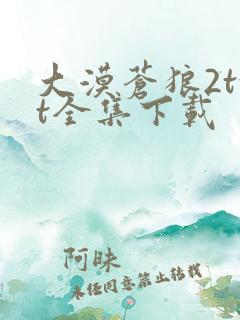 大漠蒼狼2t
t全集下載
阿昧
未经同意禁止转载